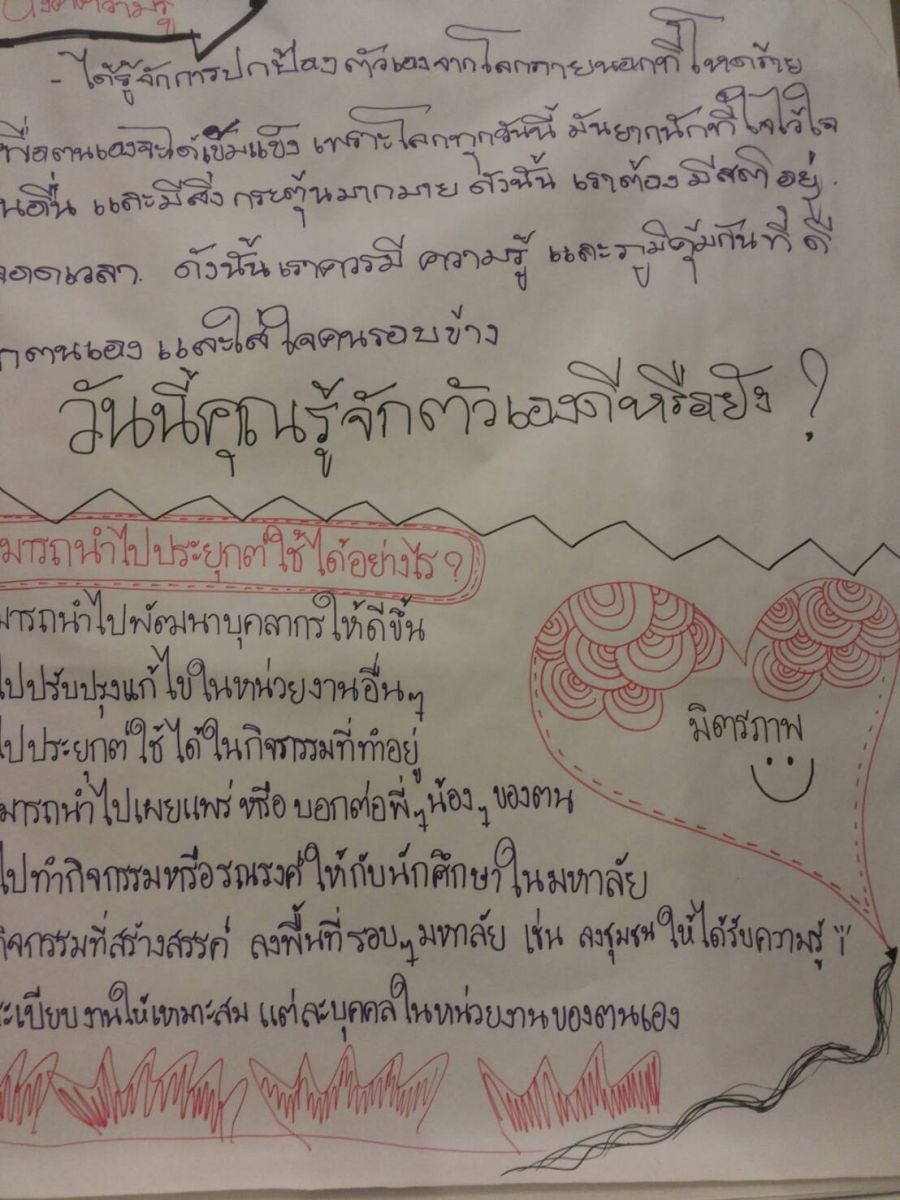 - ได้รู้จักการปกป้องตัวเองจากโลกภายนอกที่โหดร้าย
พื่อตนเองจะได้เข้มแข็ง เพราะโลกทุกวันนี้ มันยากนักที่ใจไว้ใจ
นอื่น และมีสิ่งกระตุ้นมากมาย ดังนั้น เราต้องมีสติอยู่.
ลอดเวลา. ดังนั้นเราควรมี ความรู้ และภูมิคุ้มกันที่ดี
กตนเอง และใส่ใจคนรอบข้าง
วันนี้คุณรู้จักตัวเองดีหรือยัง ?
มารถนำไปประยุกต์ใช้ได้อย่างไร ?
มารถนำไปพัฒนาบุคลากรให้ดีขึ้น
ไปปรับปรุงแก้ไขในหน่วยงานอื่นๆ
ไปประยุกต์ใช้ได้ในกิจกรรมที่ทำอยู่
มารถนำไปเผยแพร่ หรือ บอกต่อพี่ๆน้องๆของตน
ไปทำกิจกรรมหรือรณรงค์ให้กับนักศึกษาในมหาลัย
กิจกรรมที่สร้างสรรค์ ลงพื้นที่รอบๆมหาลัย เช่น ลงชุมชนให้ได้รับความรู้
ะเบียบงานให้เหมาะสม แต่ละบุคคลในหน่วยงานของตนเอง
มิตรภาพ